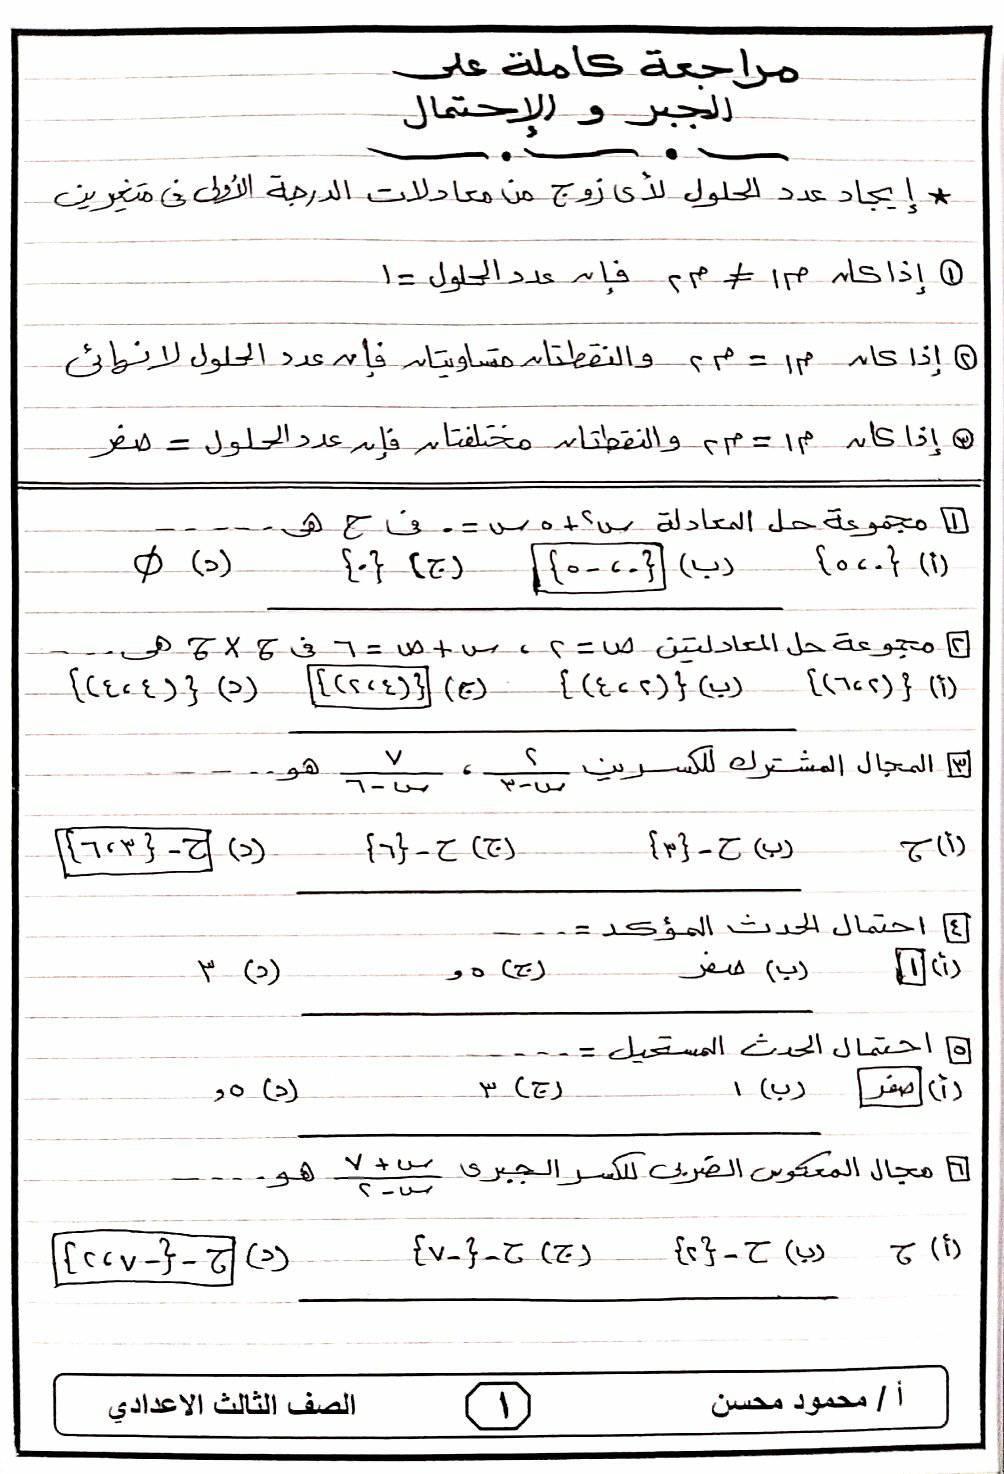 مراجعة كاملة على
الجبر و الإحتمال
* إيجاد عدد الحلول لأى زوج من معادلات الدرجة الأولى فى متغيرين
① إذا كان م١ ≠ م٢ فإن عدد الحلول = ١
② إذا كان م١ = م٢ والنقطتان متساويتان فإن عدد الحلول لانهائى
③ إذا كان م١ = م٢ والنقطتان مختلفتان فإن عدد الحلول = صفر
١ مجموعة حل المعادلة س٢ + ٥ س = ٠ فى ح هى ------
(أ) {٠، ٥} (ب) {٠، -٥} (ج) {٠} (د) ∅
٢ مجموعة حل المعادلتين ص = ٢ ، س + ص = ٦ فى ح × ح هى ----
(أ) {(٢، ٦)} (ب) {(٢، ٤)} (ج) {(٤، ٢)} (د) {(٤، ٤)}
٣ المجال المشترك للكسرين ٢/(س - ٣) ، ٧/(س - ٦) هو -----
(أ) ح (ب) ح - {٣} (ج) ح - {٦} (د) ح - {٣، ٦}
٤ احتمال الحدث المؤكد = ----
(أ) ١ (ب) صفر (ج) ٥و (د) ٣
٥ احتمال الحدث المستحيل = -----
(أ) صفر (ب) ١ (ج) ٣ (د) ٥و
٦ مجال المعكوس الضربى للكسر الجبرى (س + ٧)/(س - ٢) هو -----
(أ) ح (ب) ح - {٢} (ج) ح - {-٧} (د) ح - {-٧، ٢}
أ / محمود محسن ١ الصف الثالث الاعدادي